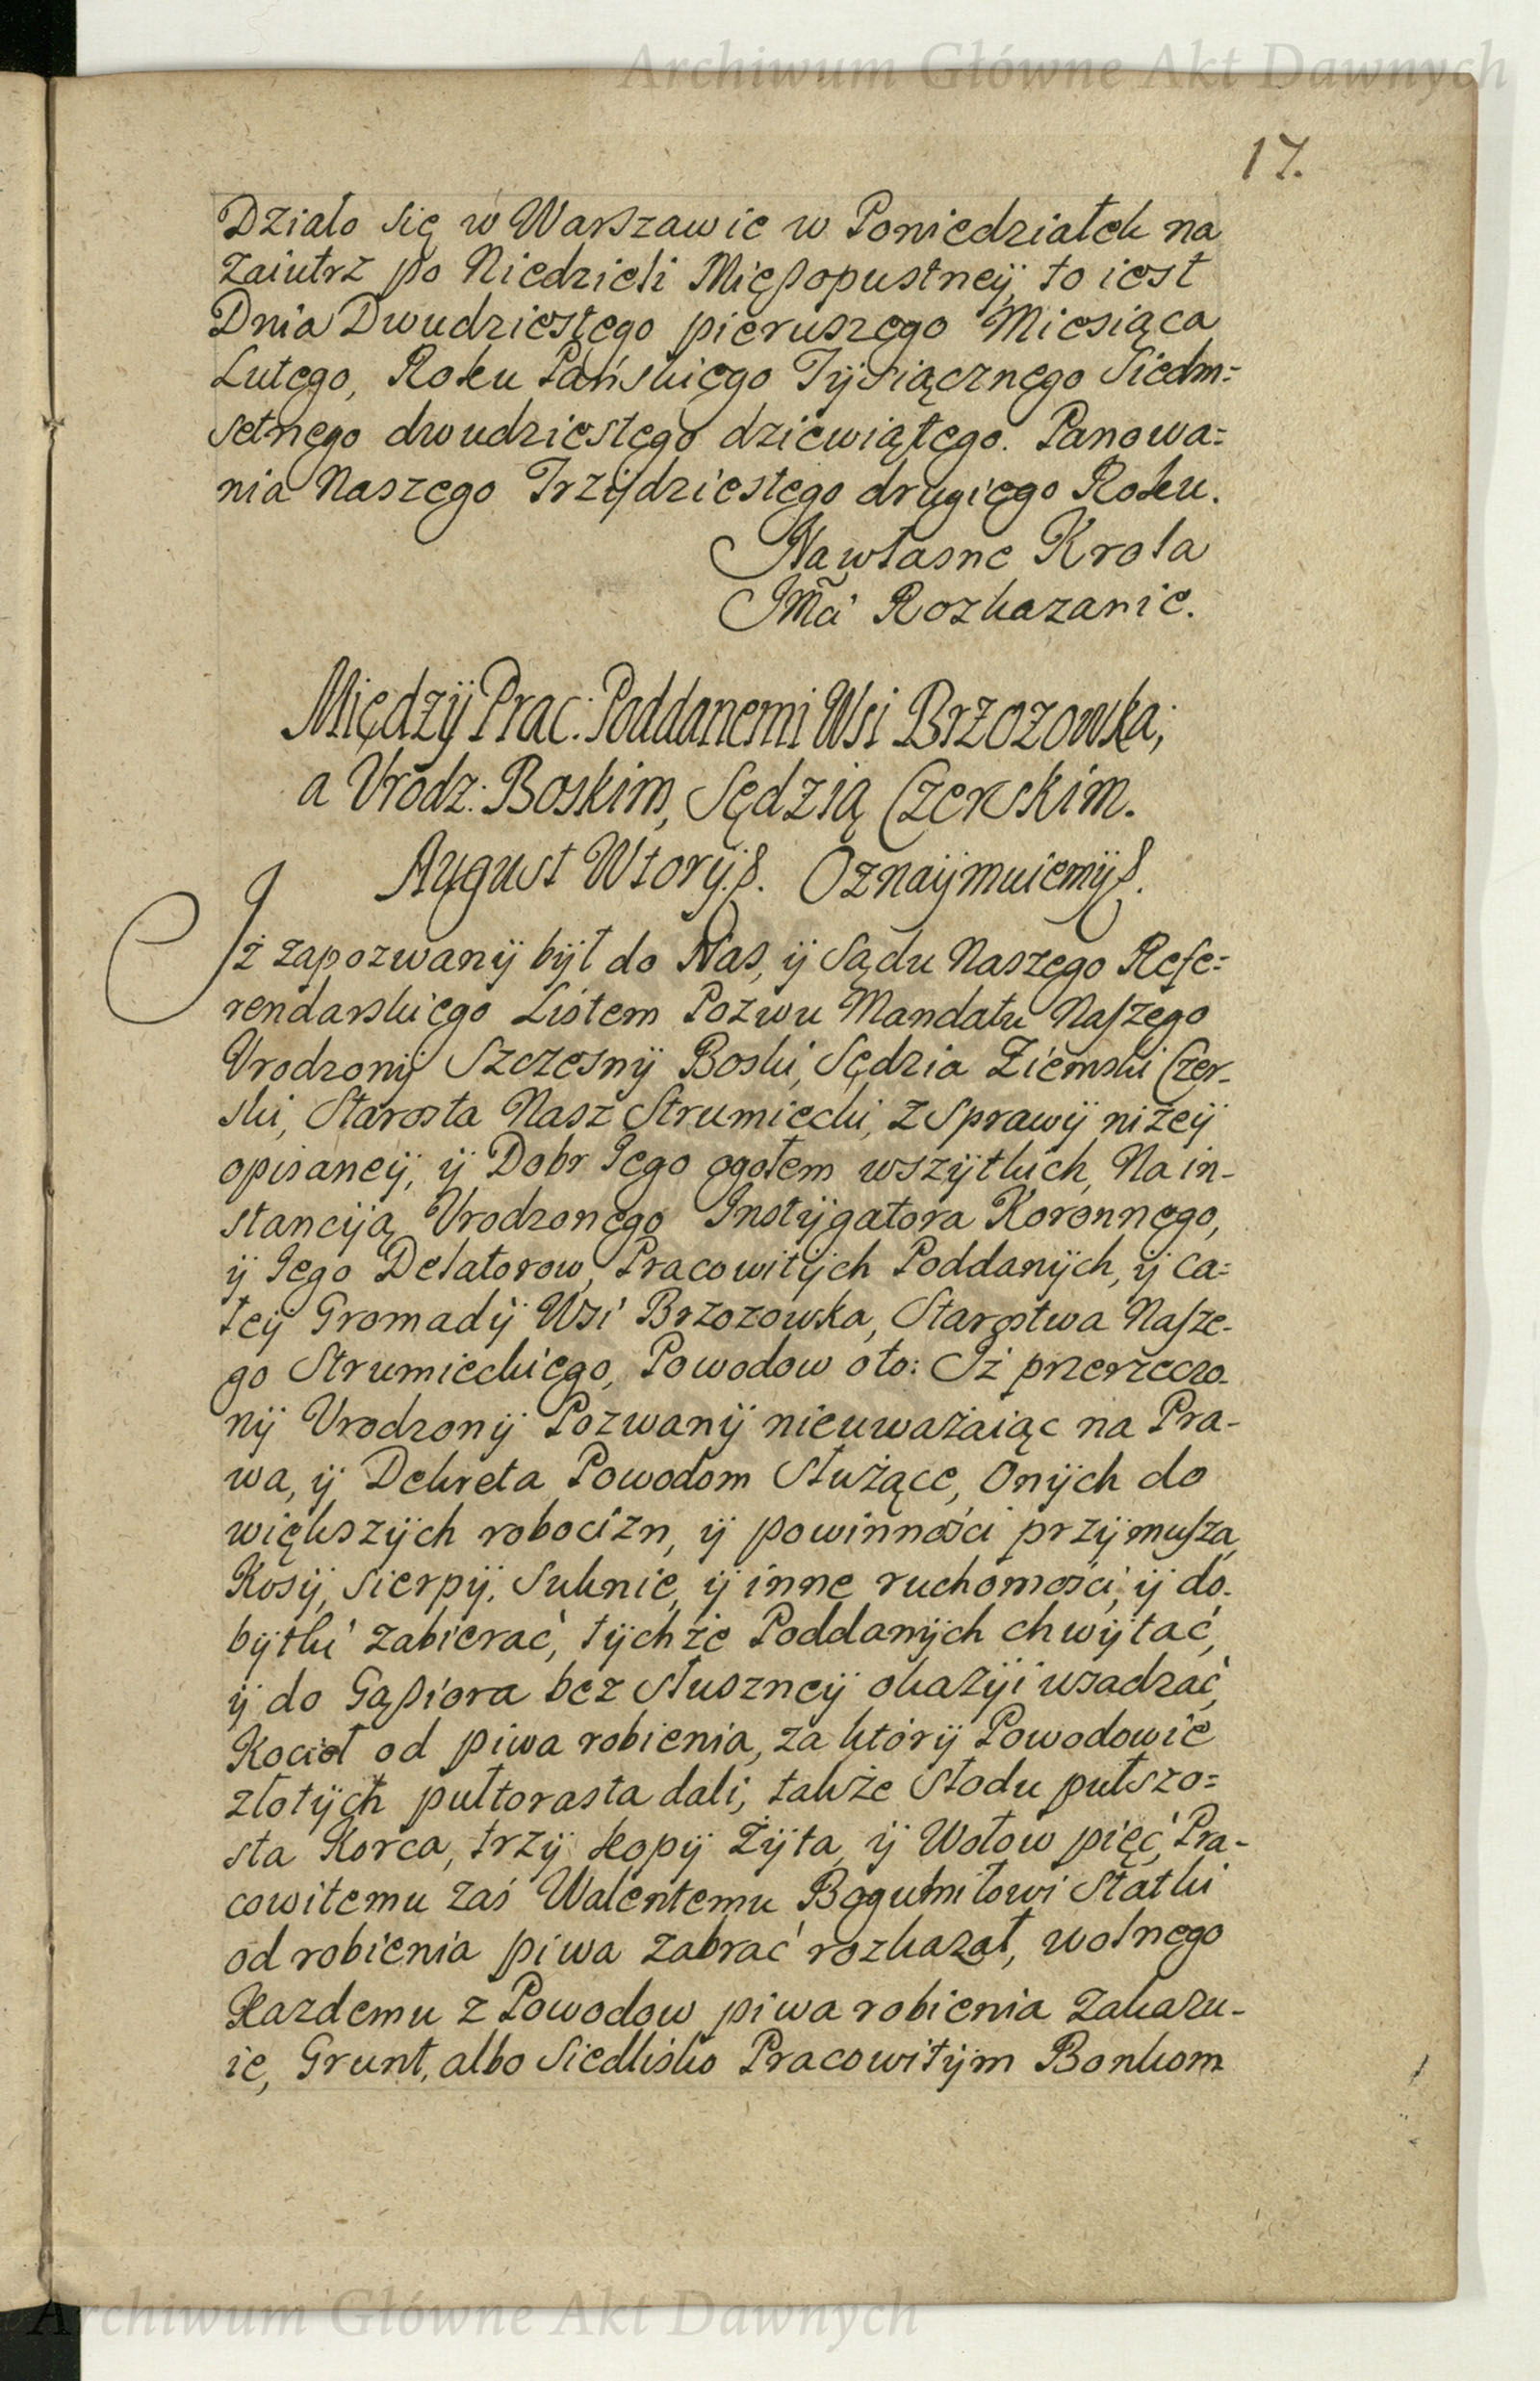 Archiwum Główne Akt Dawnych
17.
Działo się w Warszawie w Poniedziałek na
zaiutrz po Niedzieli Mięsopustneÿ, to iest
Dnia Dwudziestego pierwszego Miesiąca
Lutego, Roku Pańskiego Tÿsiącznego Siedm=
setnego dwudziestego dziewiątego. Panowa=
nia Naszego Trzÿdziestego drugiego Roku.
Na własne Krola
JMći Rozkazanie.
Międzÿ Prac: Poddanemi Wsi Brzozowka;
a Vrodz: Boskim, Sędzią Czerskim.
August Wtorÿ &. Oznaÿmuiemÿ &.
Iż zapozwanÿ bÿł do Nas, ÿ Sądu Naszego Refe=
rendarskiego Listem Pozwu Mandatu Naszego
Vrodzonÿ Szczesnÿ Boski, Sędzia Ziemski Czer-
ski, Starosta Nasz Strumiecki, z Sprawÿ niżeÿ
opisaneÿ, ÿ Dobr Iego ogołem wszÿtkich, Na in-
stancÿą Vrodzonego Instÿgatora Koronnego,
ÿ Iego Delatorow, Pracowitÿch Poddanÿch, ÿ ca=
łeÿ Gromadÿ Wsi Brzozowka, Starostwa Nasze-
go Strumieckiego, Powodow oto: Iż przerzeczo-
nÿ Vrodzonÿ Pozwanÿ nieuważaiąc na Pra-
wa, ÿ Dekreta Powodom Służące, Onÿch do
większÿch robocizn, ÿ powinności przÿmusza,
Kosÿ, Sierpÿ, Suknie, ÿ inne ruchomości, ÿ do-
bÿtki zabierać, tÿchże Poddanÿch chwÿtać,
ÿ do Gąsiora bez słuszneÿ okazÿi wsadzać,
Kocioł od piwa robienia, za ktorÿ Powodowie
złotÿch pułtorasta dali, także Słodu pułszo=
sta Korca, trzÿ kopÿ Żÿta, ÿ Wołow pięć, Pra-
cowitemu zaś Walentemu Bogumiłowi Statki
od robienia piwa zabrać rozkazał, wolnego
Kazdemu z Powodow piwa robienia zakazu-
ie, Grunt, albo Siedlisko Pracowitÿm Bonkom
Archiwum Główne Akt Dawnych